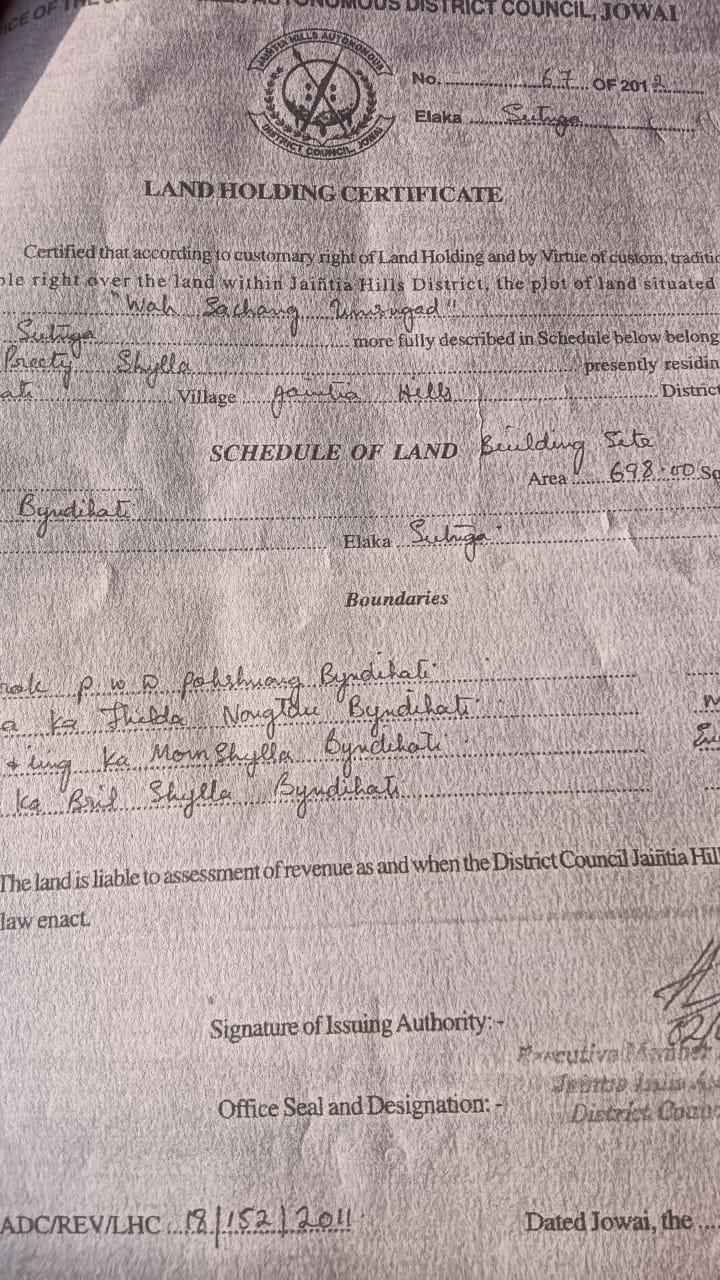 ICE OF THE
AUTONOMOUS DISTRICT COUNCIL, JOWAI
JAINTIA HILLS AUTONOMOUS
DISTRICT COUNCIL JOWAI
No. 67 OF 2012
Elaka Sutnga
LAND HOLDING CERTIFICATE
Certified that according to customary right of Land Holding and by Virtue of custom, traditio
ble right over the land within Jaiñtia Hills District, the plot of land situated
"Wah Sachang Umsngad"
Sutnga more fully described in Schedule below belong
Preety Shylla presently residin
ati Village Jaintia Hills District
SCHEDULE OF LAND Building Site
Area 698.00 Sq
Byndihati
Elaka Sutnga
Boundaries
P.W.D Byndihati
a Ka Thilda Byndihati
ing Ka Morn Shylla Byndihati
Ka Bril Shylla Byndihati
The land is liable to assessment of revenue as and when the District Council Jaiñtia Hil
law enact.
Signature of Issuing Authority: -
Executive Member
Office Seal and Designation: -
District Coun
ADC/REV/LHC 18/152/2011
Dated Jowai, the